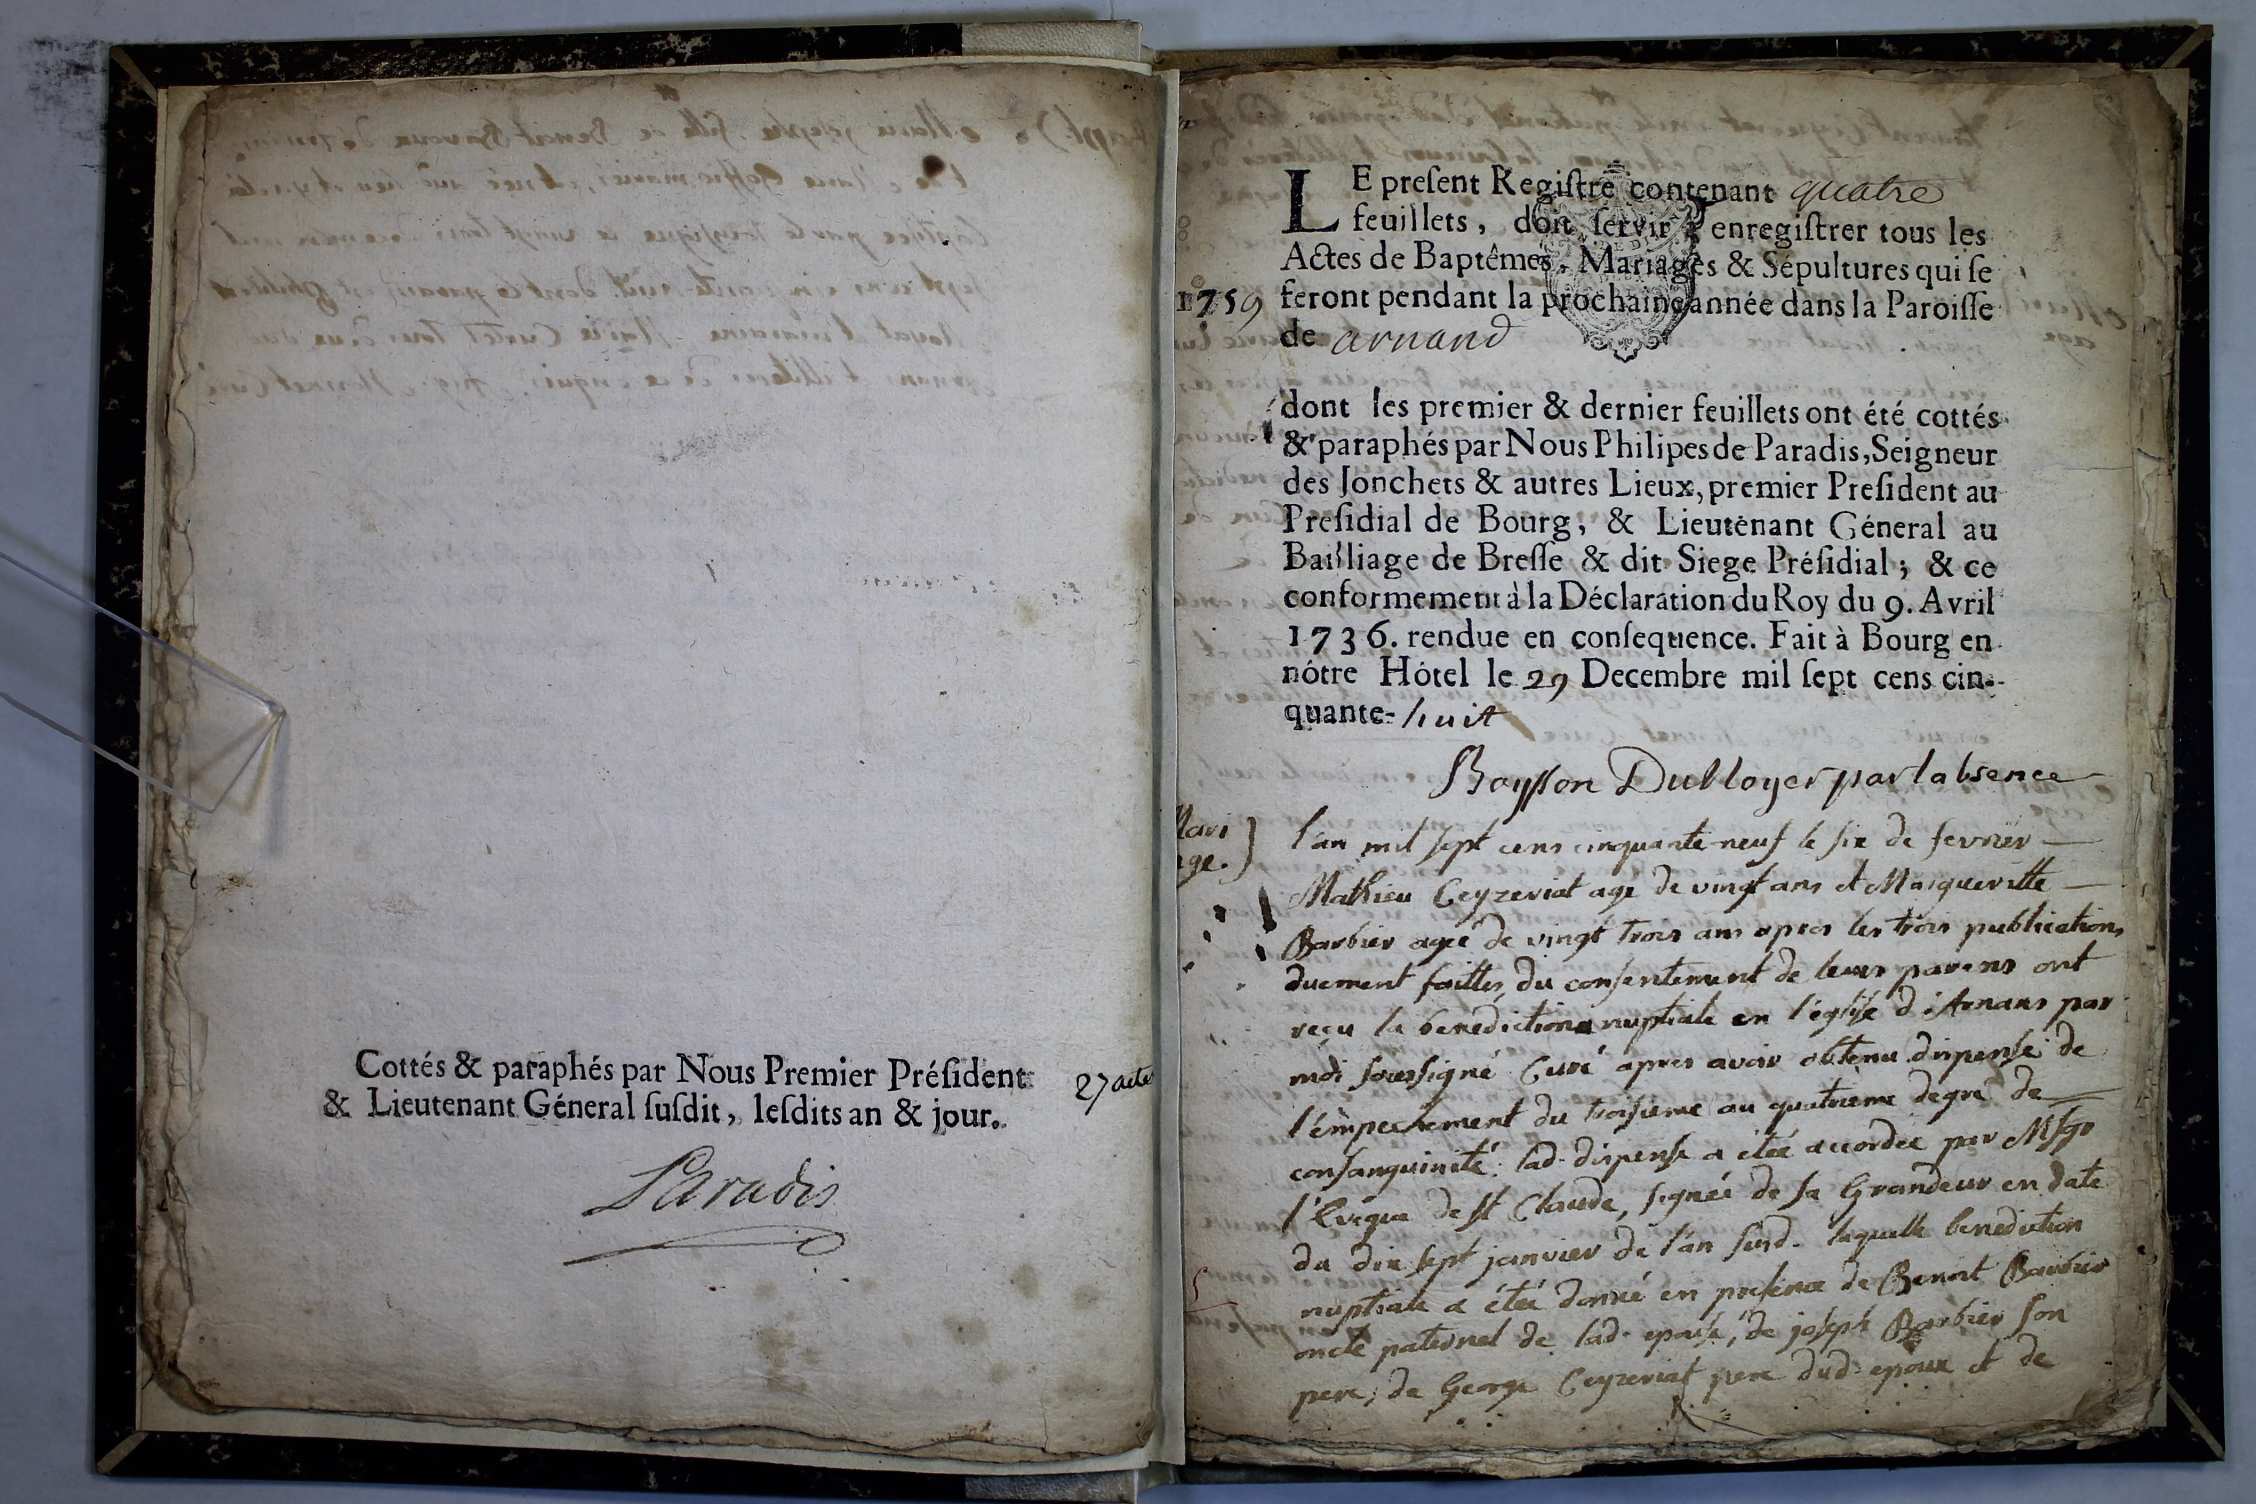 Cottés & paraphés par Nous Premier Préſident
& Lieutenant Géneral ſuſdit, leſdits an & jour.
27 actes
Paradis
LE preſent Regiſtre contenant quatre
feuillets, doit ſervir à enregiſtrer tous les
Actes de Baptêmes, Mariages & Sépultures qui ſe
1759
feront pendant la prochaine année dans la Paroiſſe
de arnand
dont les premier & dernier feuillets ont été cottés
& paraphés par Nous Philipes de Paradis, Seigneur
des Jonchets & autres Lieux, premier Preſident au
Preſidial de Bourg, & Lieutenant Géneral au
Bailliage de Breſſe & dit Siege Préſidial; & ce
conformement à la Déclaration du Roy du 9. Avril
1736. rendue en conſequence. Fait à Bourg en
nôtre Hôtel le 29 Decembre mil ſept cens cin-
quante-huit
par labsence
Mari
age.
l'an mil sept cens cinquante neuf le six de fevrier
Mathieu Ceyzeriat agé de vingt ans et Marqueritte
Barbier agée de vingt trois ans apres les trois publications
duement faittes, du consentement de leurs parens ont
reçu la benediction nuptiale en l'église d'Arnans par
moi soussigné Curé apres avoir obtenu dispense de
l'empechement du troisieme au quatrieme degré de
consanguinité: lad. dispense a étée accordée par Msgr
l'Evêque de St Claude, signée de sa Grandeur en date
du dix sept janvier de l'an susd. laquelle benediction
nuptiale a étée donné en presence de Benoit Barbier
oncle paternel de lad. epouse, de joseph Barbier son
pere, de George Ceyzeriat pere dud. epoux et de